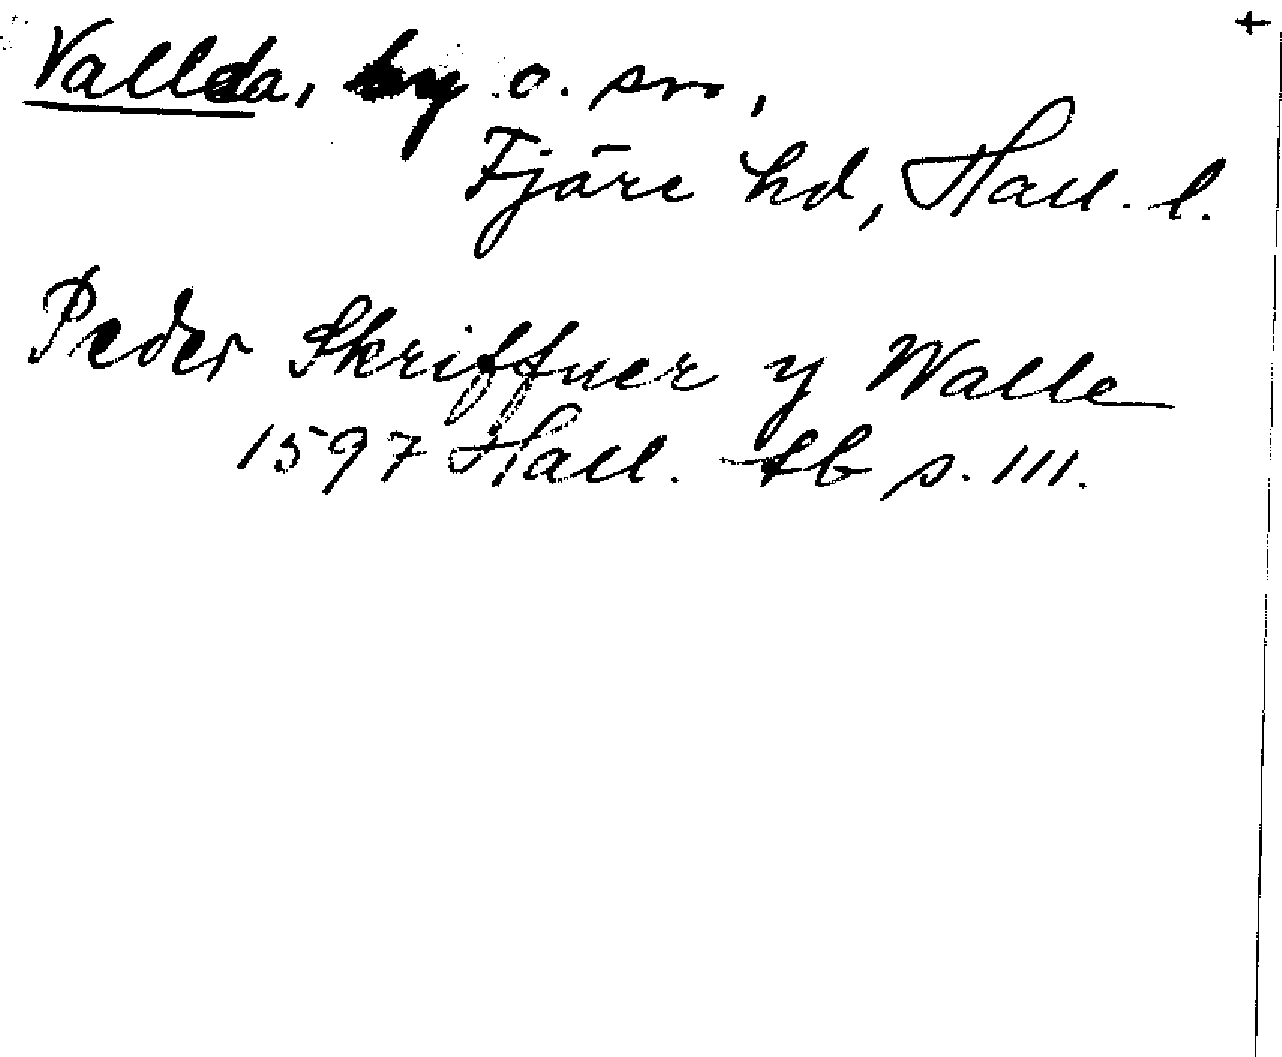 +
Vallda, by o. sn,
Fjäre hd, Hall. l.
Peder Skriffuer y Walle
1597 Hall. tb s. 111.